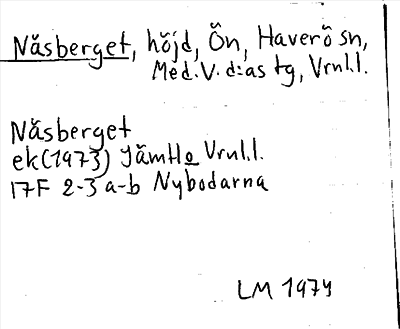 Näsberget, höjd, Ön, Haverö sn,
Med. V. d:as tg, Vrnl.l.
Näsberget
ek (1973) Jämtl o Vrnl.l.
17F 2-3 a-b Nybodarna
LM 1974